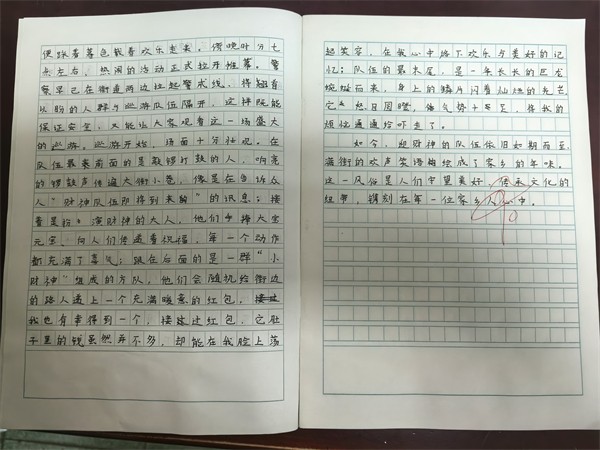 便踩着暮色载着欢乐走来。傍晚时分七
点左右，热闹的活动正式拉开帷幕。警
察早已在街道两边拉起警戒线，将翘首
以盼的人群与巡游队伍隔开，这样既能
保证安全，又能让大家观看这一场盛大
的巡游。巡游开始，场面十分壮观。在
队伍最前面的是敲锣打鼓的人，响亮
的锣鼓声传遍大街小巷，像是在告诉众
人“财神队伍即将到来喻”的讯息；接
着是扮演财神的大人，他们手捧大金
元宝，向人们传递着祝福，每一个动作
都充满了喜气；跟在后面的是一群“小
财神”组成的方队，他们会随机给街边
的路人递上一个充满暖意的红包，
我也有幸得到一个，接过红包，它肚
子里的钱虽然并不多，却能在我脸上荡
起笑容，在我心中络下欢乐与美好的记
忆；队伍的最末尾，是一条长长的巨龙
蜿蜒而来，身上的鳞片闪着灿烂的光芒，
它怒目圆瞪，气势十足，将我的
烦忧通通给吓走了。
如今，迎财神的队伍依旧如期而至，
满街的欢声笑语描绘成了家乡的年味。
这一风俗是人们守望美好、传承文化的
纽带，镌刻在每一位家乡人心中。